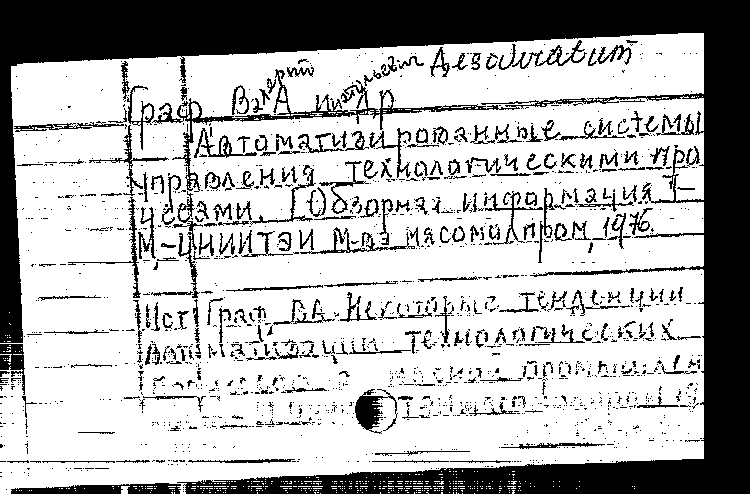 Desideratum
Граф В.А. и др
Автоматизированные системы
управления технологическими про
цесами. [Обзорная информация]-
М,-ЦНИИТЭИ М-ва мясомолпром, 1976.
Ист Граф, В.А. Некоторые тенденции
Автоматизации технологических
мясной промышлен